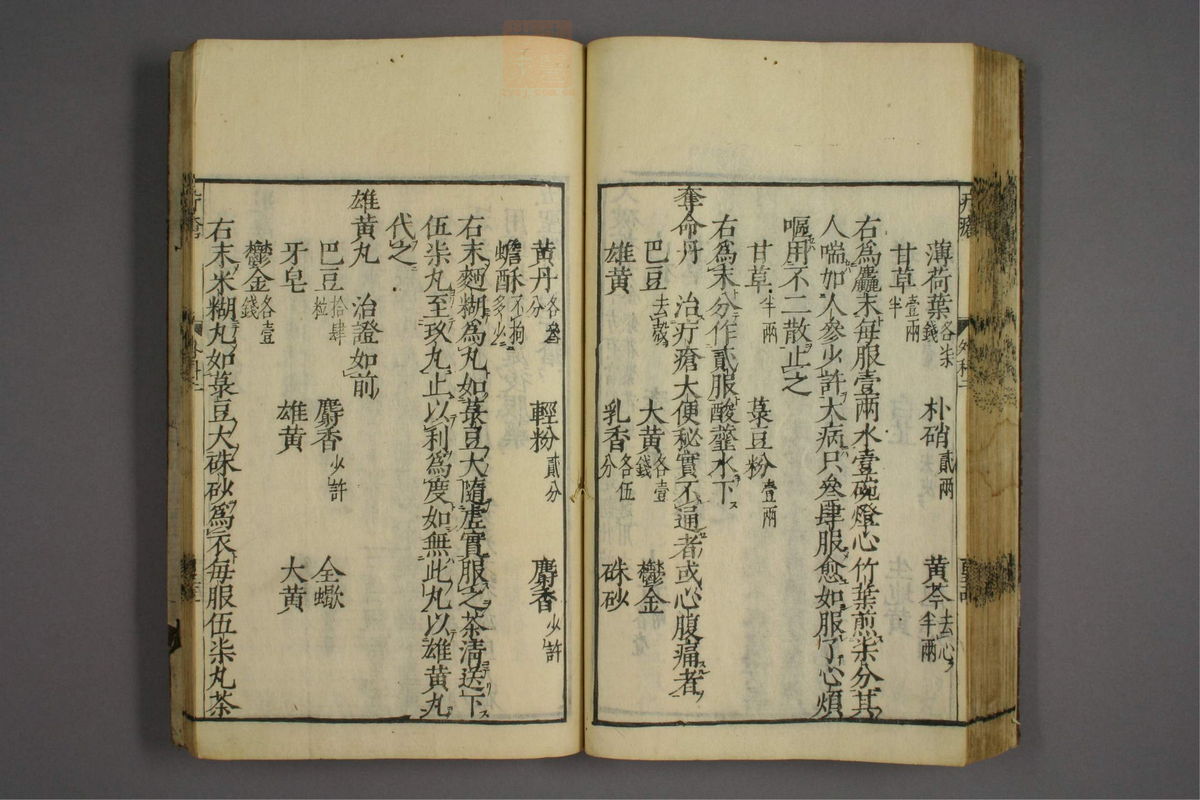 薄荷葉各柒錢 朴硝貳兩 黃芩去心半兩
甘草壹兩半
右為麤末每服壹兩水壹碗燈心竹葉煎柒分其
人喘如人參少許大病只叄肆服愈如服了心煩
嘔用不二散止之
甘草半兩 菉豆粉壹兩
右為末分作貳服酸虀水下
奪命丹 治疔瘡大便秘實不通者或心腹痛者
巴豆去殼 大黃各壹錢 鬱金
雄黃 乳香各伍分 硃砂
黃丹各叄分 輕粉貳分 麝香少許
蟾酥不拘多少
右末麵糊為丸如菉豆大隨虛實服之茶清送下
伍柒丸至玖丸止以利為度如無此丸以雄黃丸
代之
雄黃丸 治證如前
巴豆拾肆粒 麝香少許 全蠍
牙皂 雄黃 大黃
鬱金各壹錢
右末米糊丸如菉豆大硃砂為衣每服伍柒丸茶